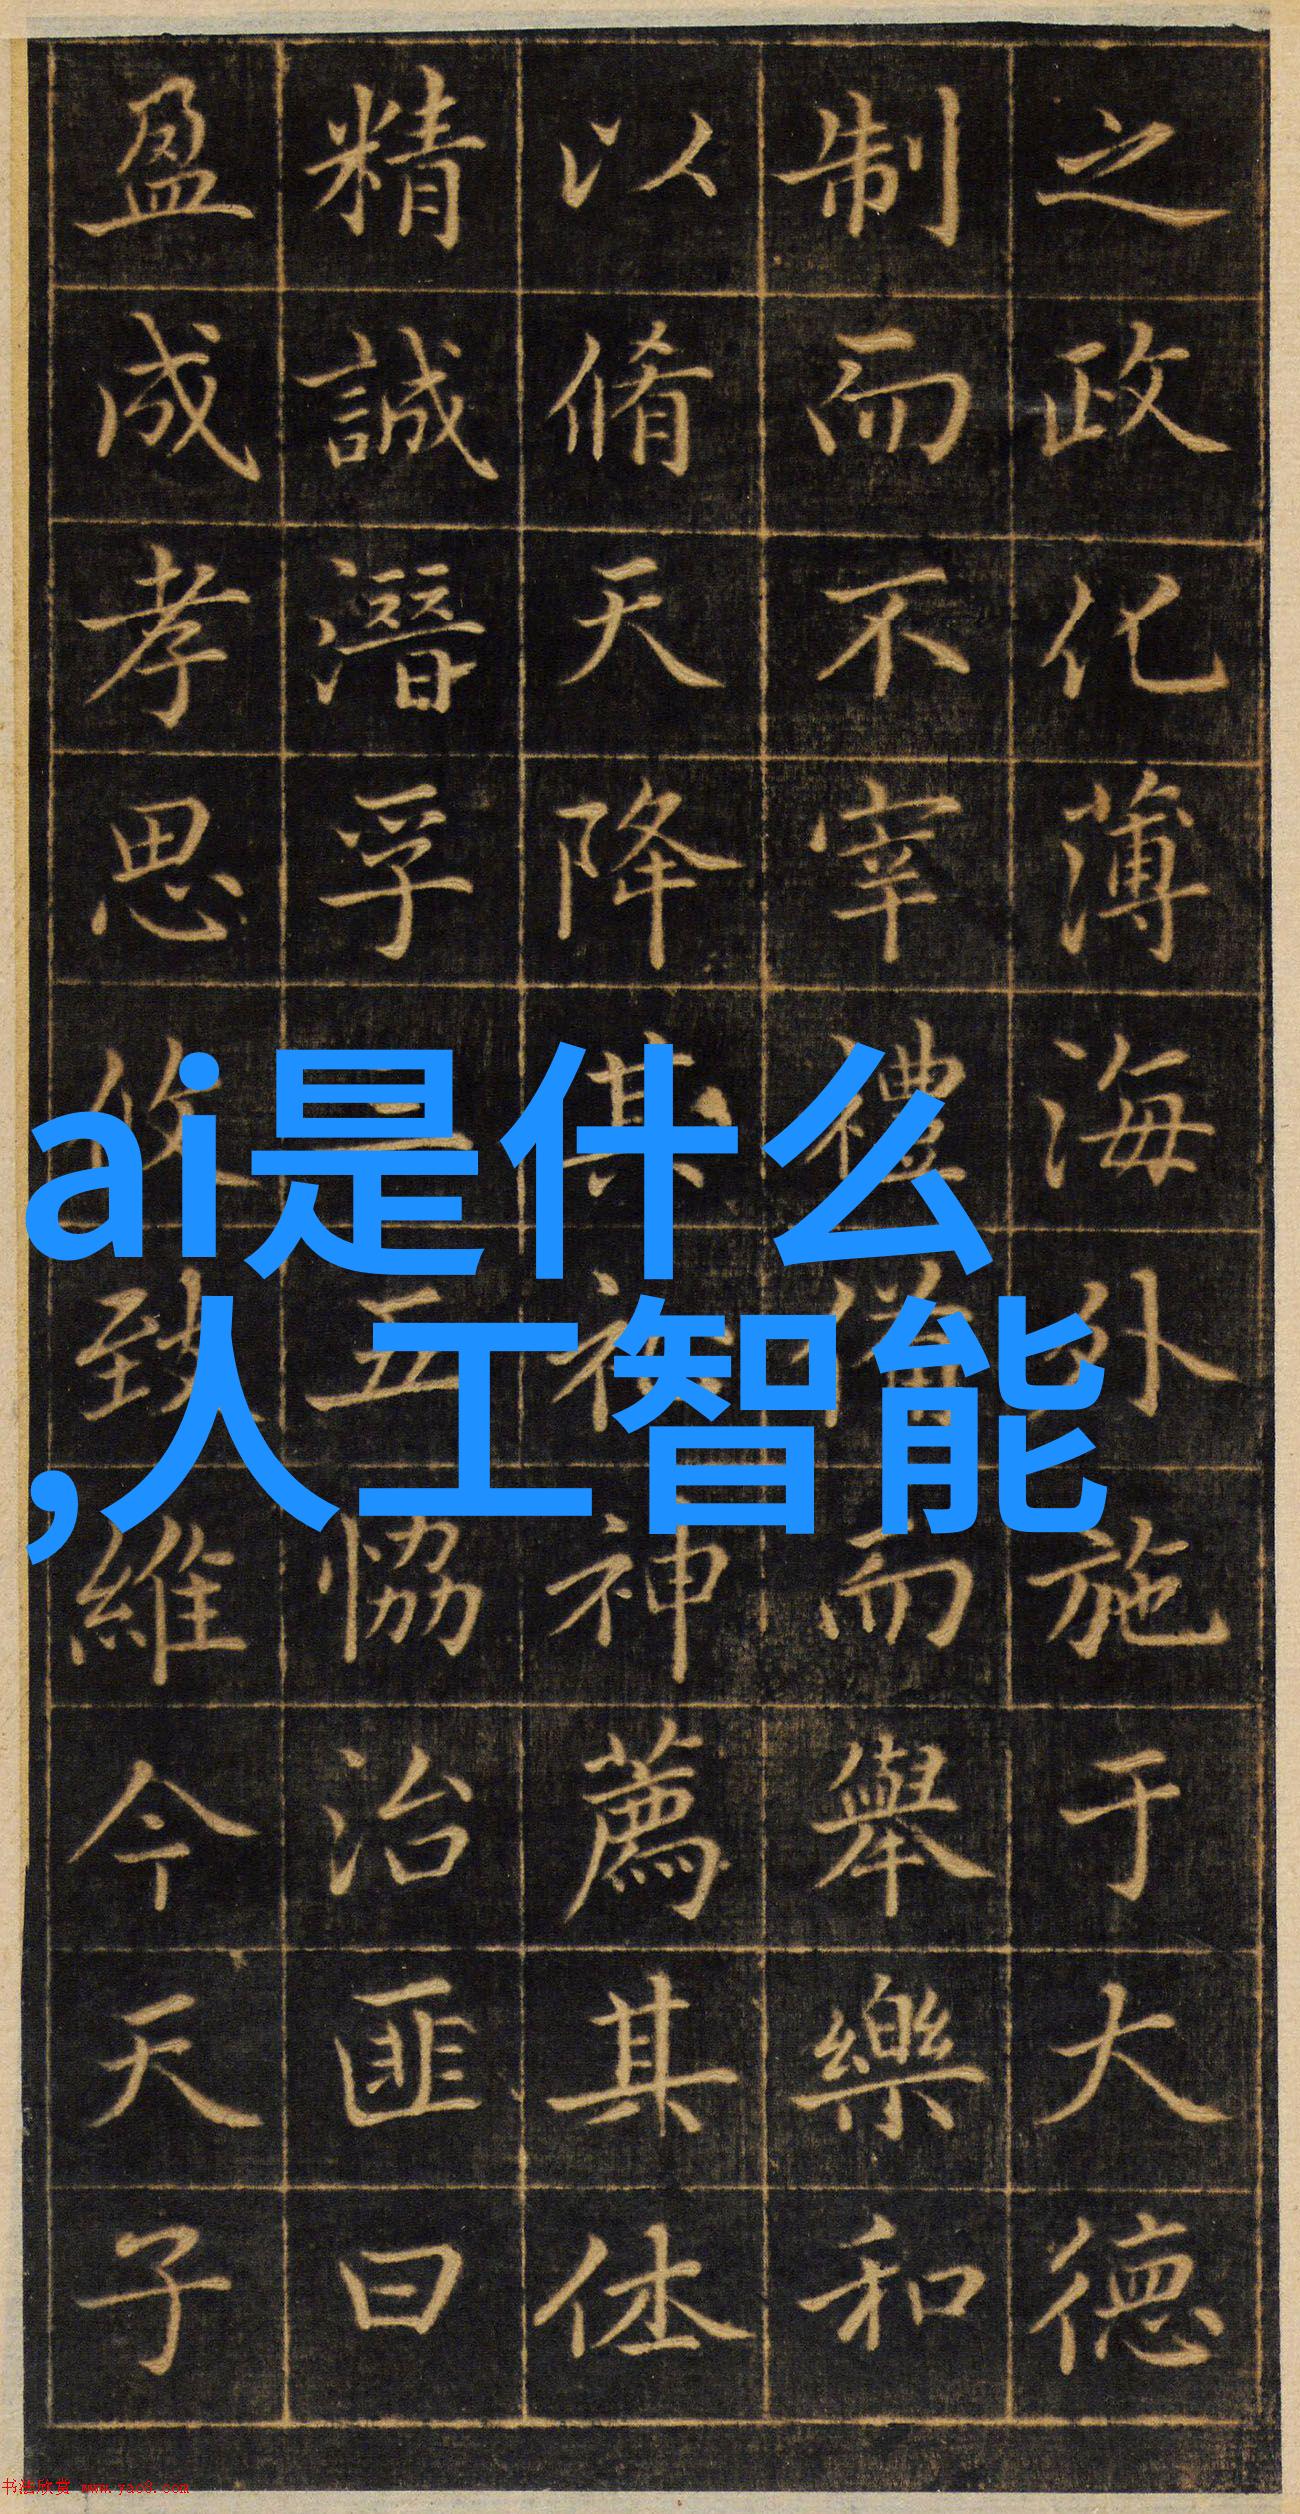 之政化薄海外施于大德
制而不宰禮備而舉樂和
以脩天降其神薦其休
精誠潛孚五恊治匪曰
盈成孝思攸致維今天子
ai是什么
,人工智能
书法欣赏 www.yac8.com